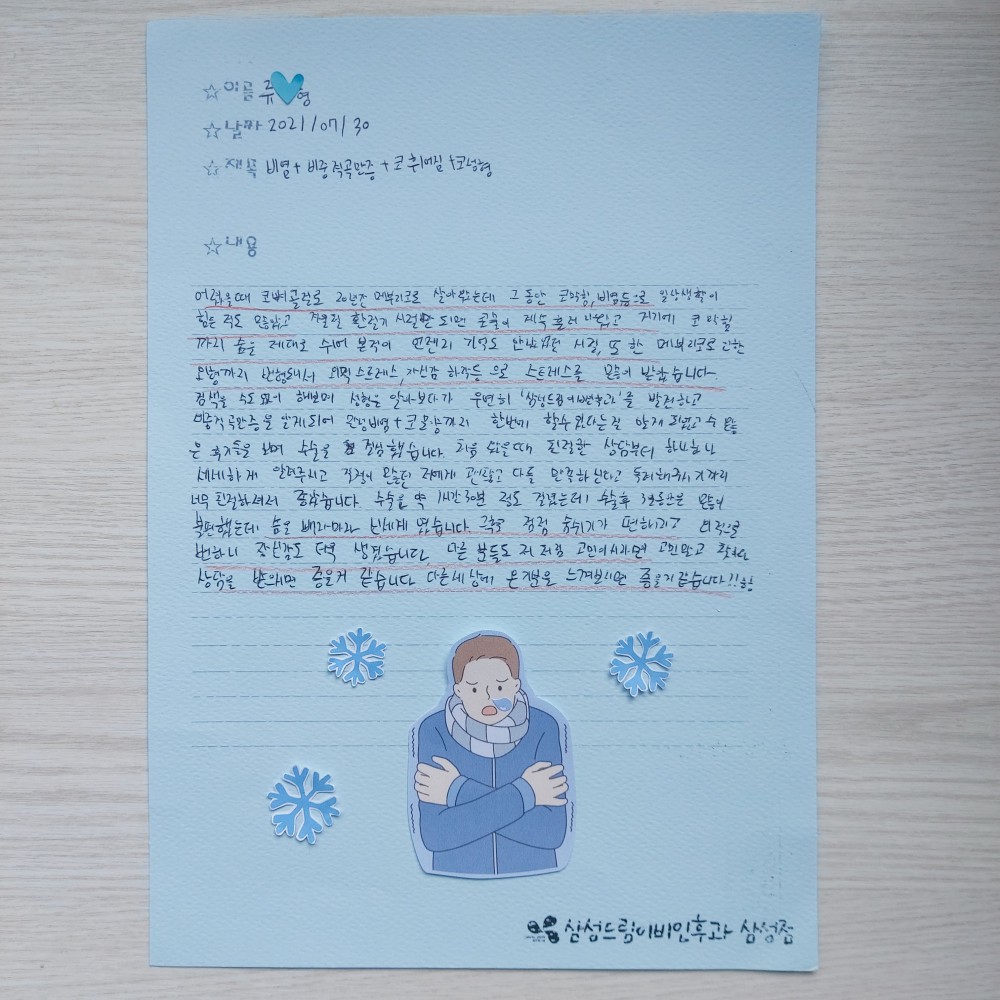 ☆이름 류 형
☆날짜 2021/07/30
☆제목 비염+비중격곡만증+코휘어짐+코성형
☆내용
어렸을때 코뼈골절로 20년간 매부리코로 살아왔는데 그동안 코막힘, 비염등으로 일상생활이
힘든적도 많았고 겨울철 환절기 시절만 되면 콧물이 계속 흘러 나왔고 거기에 코막힘
까지 숨을 제대로 쉬어 본적이 언젠지 기억도 안났던 시절, 또한 매부리코로 인한
외형까지 변형되서 외적스트레스, 자신감 하락등 으로 스트레스를 많이 받았습니다.
검색을 수도 없이 해보며 성형을 알아보다가 우연히 '삼성드림이비인후과'를 발견하고
비중격곡만증을 알게되어 만성비염+코모양까지 한번에 할수있다는걸 알게 되었고 수 많
은 후기들을 보며 수술을 결정했습니다. 처음 갔을때 친절한 상담부터 하나하나
세세하게 알려주시고 걱정이 많았던 저에게 괜찮고 다들 만족하신다고 독려해주시기까지
너무 친절하셔서 좋았습니다. 수술을 약 1시간30분 정도 걸렸는데 수술후 3일동안은 많이
불편했는데 솜을 빼자마자 신세계 였습니다. 그후로 점점 숨쉬기가 편해지고 외적으로
변하니 자신감도 더욱 생겼습니다. 다른 분들도 저처럼 고민이시라면 고민말고 찾아가
상담을 받으시면 좋을거 같습니다 다른세상에 온기분을 느껴보시면 좋을거같습니다!!ㅎㅎ
삼성드림이비인후과 삼성점